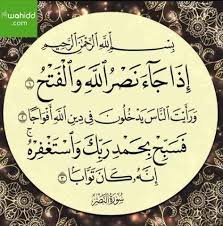 wahidd
.com
بِسْمِ ٱللَّهِ ٱلرَّحْمَٰنِ ٱلرَّحِيمِ
إِذَا جَآءَ نَصْرُ ٱللَّهِ وَٱلْفَتْحُ ١
وَرَأَيْتَ ٱلنَّاسَ يَدْخُلُونَ فِي دِينِ ٱللَّهِ أَفْوَاجًا ٢
فَسَبِّحْ بِحَمْدِ رَبِّكَ وَٱسْتَغْفِرْهُ ۚ
إِنَّهُۥ كَانَ تَوَّابًۢا ٣
سُورَةُ النَّصْرِ